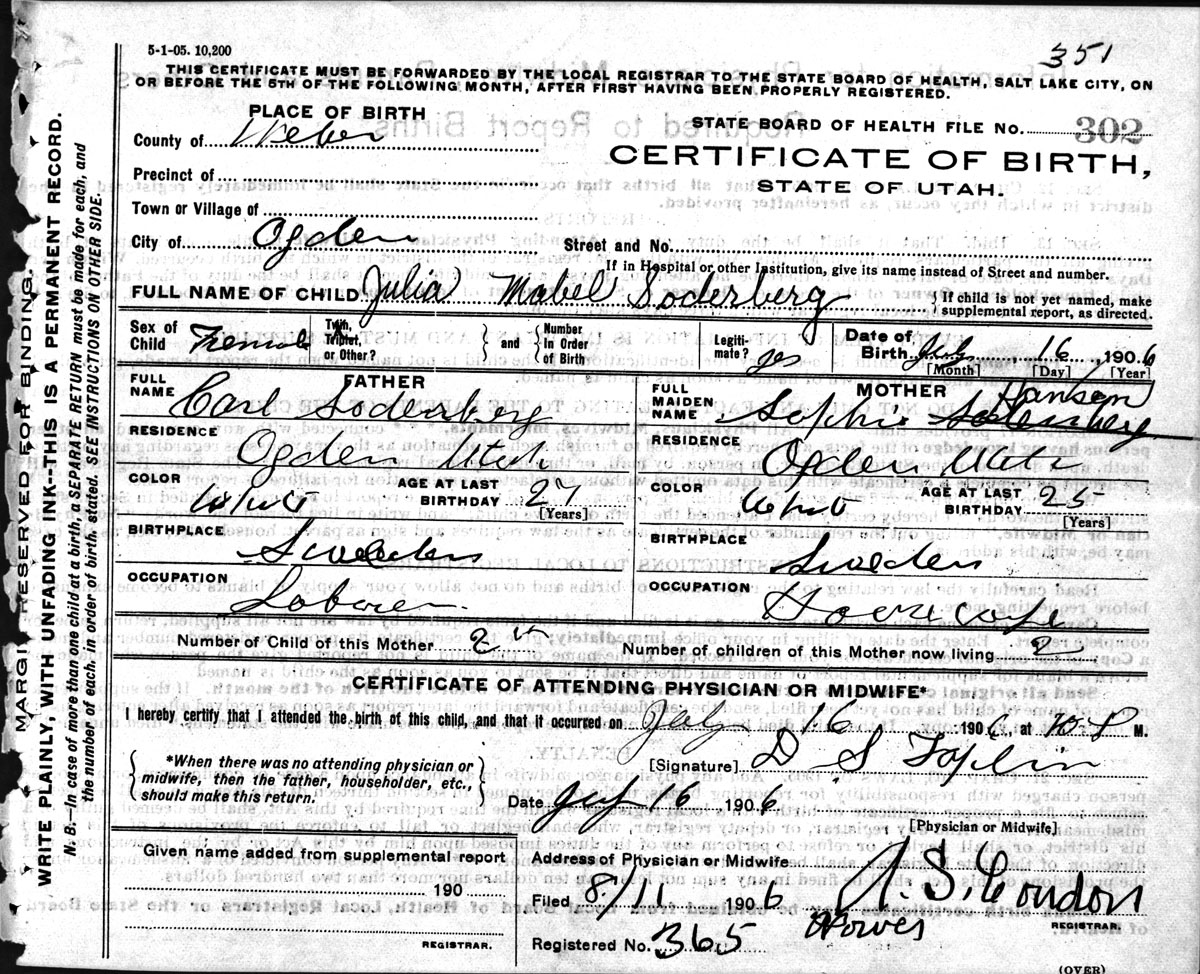 5-1-05. 10,200
351
THIS CERTIFICATE MUST BE FORWARDED BY THE LOCAL REGISTRAR TO THE STATE BOARD OF HEALTH, SALT LAKE CITY, ON
OR BEFORE THE 5TH OF THE FOLLOWING MONTH, AFTER FIRST HAVING BEEN PROPERLY REGISTERED.
PLACE OF BIRTH
County of Weber
STATE BOARD OF HEALTH FILE NO. 302
CERTIFICATE OF BIRTH,
STATE OF UTAH.
Precinct of
Town or Village of
City of Ogden Street and No.
If in Hospital or other Institution, give its name instead of Street and number.
FULL NAME OF CHILD Julia Mabel Soderberg { If child is not yet named, make supplemental report, as directed.
Sex of Child Female Twin, Triplet, or Other? } and { Number In Order of Birth Legiti-mate? yes Date of Birth July 16, 1906
[Month] [Day] [Year]
FATHER
FULL NAME Carl Soderberg
RESIDENCE Ogden Utah
COLOR White AGE AT LAST BIRTHDAY 27 [Years]
BIRTHPLACE Sweden
OCCUPATION Laborer
MOTHER
FULL MAIDEN NAME Sophie Soderberg Hansen
RESIDENCE Ogden Utah
COLOR White AGE AT LAST BIRTHDAY 25 [Years]
BIRTHPLACE Sweden
OCCUPATION Housewife
Number of Child of this Mother 2 Number of children of this Mother now living 2
CERTIFICATE OF ATTENDING PHYSICIAN OR MIDWIFE*
I hereby certify that I attended the birth of this child, and that it occurred on July 16 1906 at 10 P M.
{ *When there was no attending physician or midwife, then the father, householder, etc., should make this return. }
[Signature] D S Toplin
Date July 16 1906
[Physician or Midwife]
Given name added from supplemental report
190
REGISTRAR.
Address of Physician or Midwife
Filed 8/11 1906 J. S. Gordon
REGISTRAR.
Registered No. 365
(OVER)
MARGIN RESERVED FOR BINDING.
WRITE PLAINLY, WITH UNFADING INK--THIS IS A PERMANENT RECORD.
N. B.—In case of more than one child at a birth, a SEPARATE RETURN must be made for each, and
the number of each, in order of birth, stated. SEE INSTRUCTIONS ON OTHER SIDE.